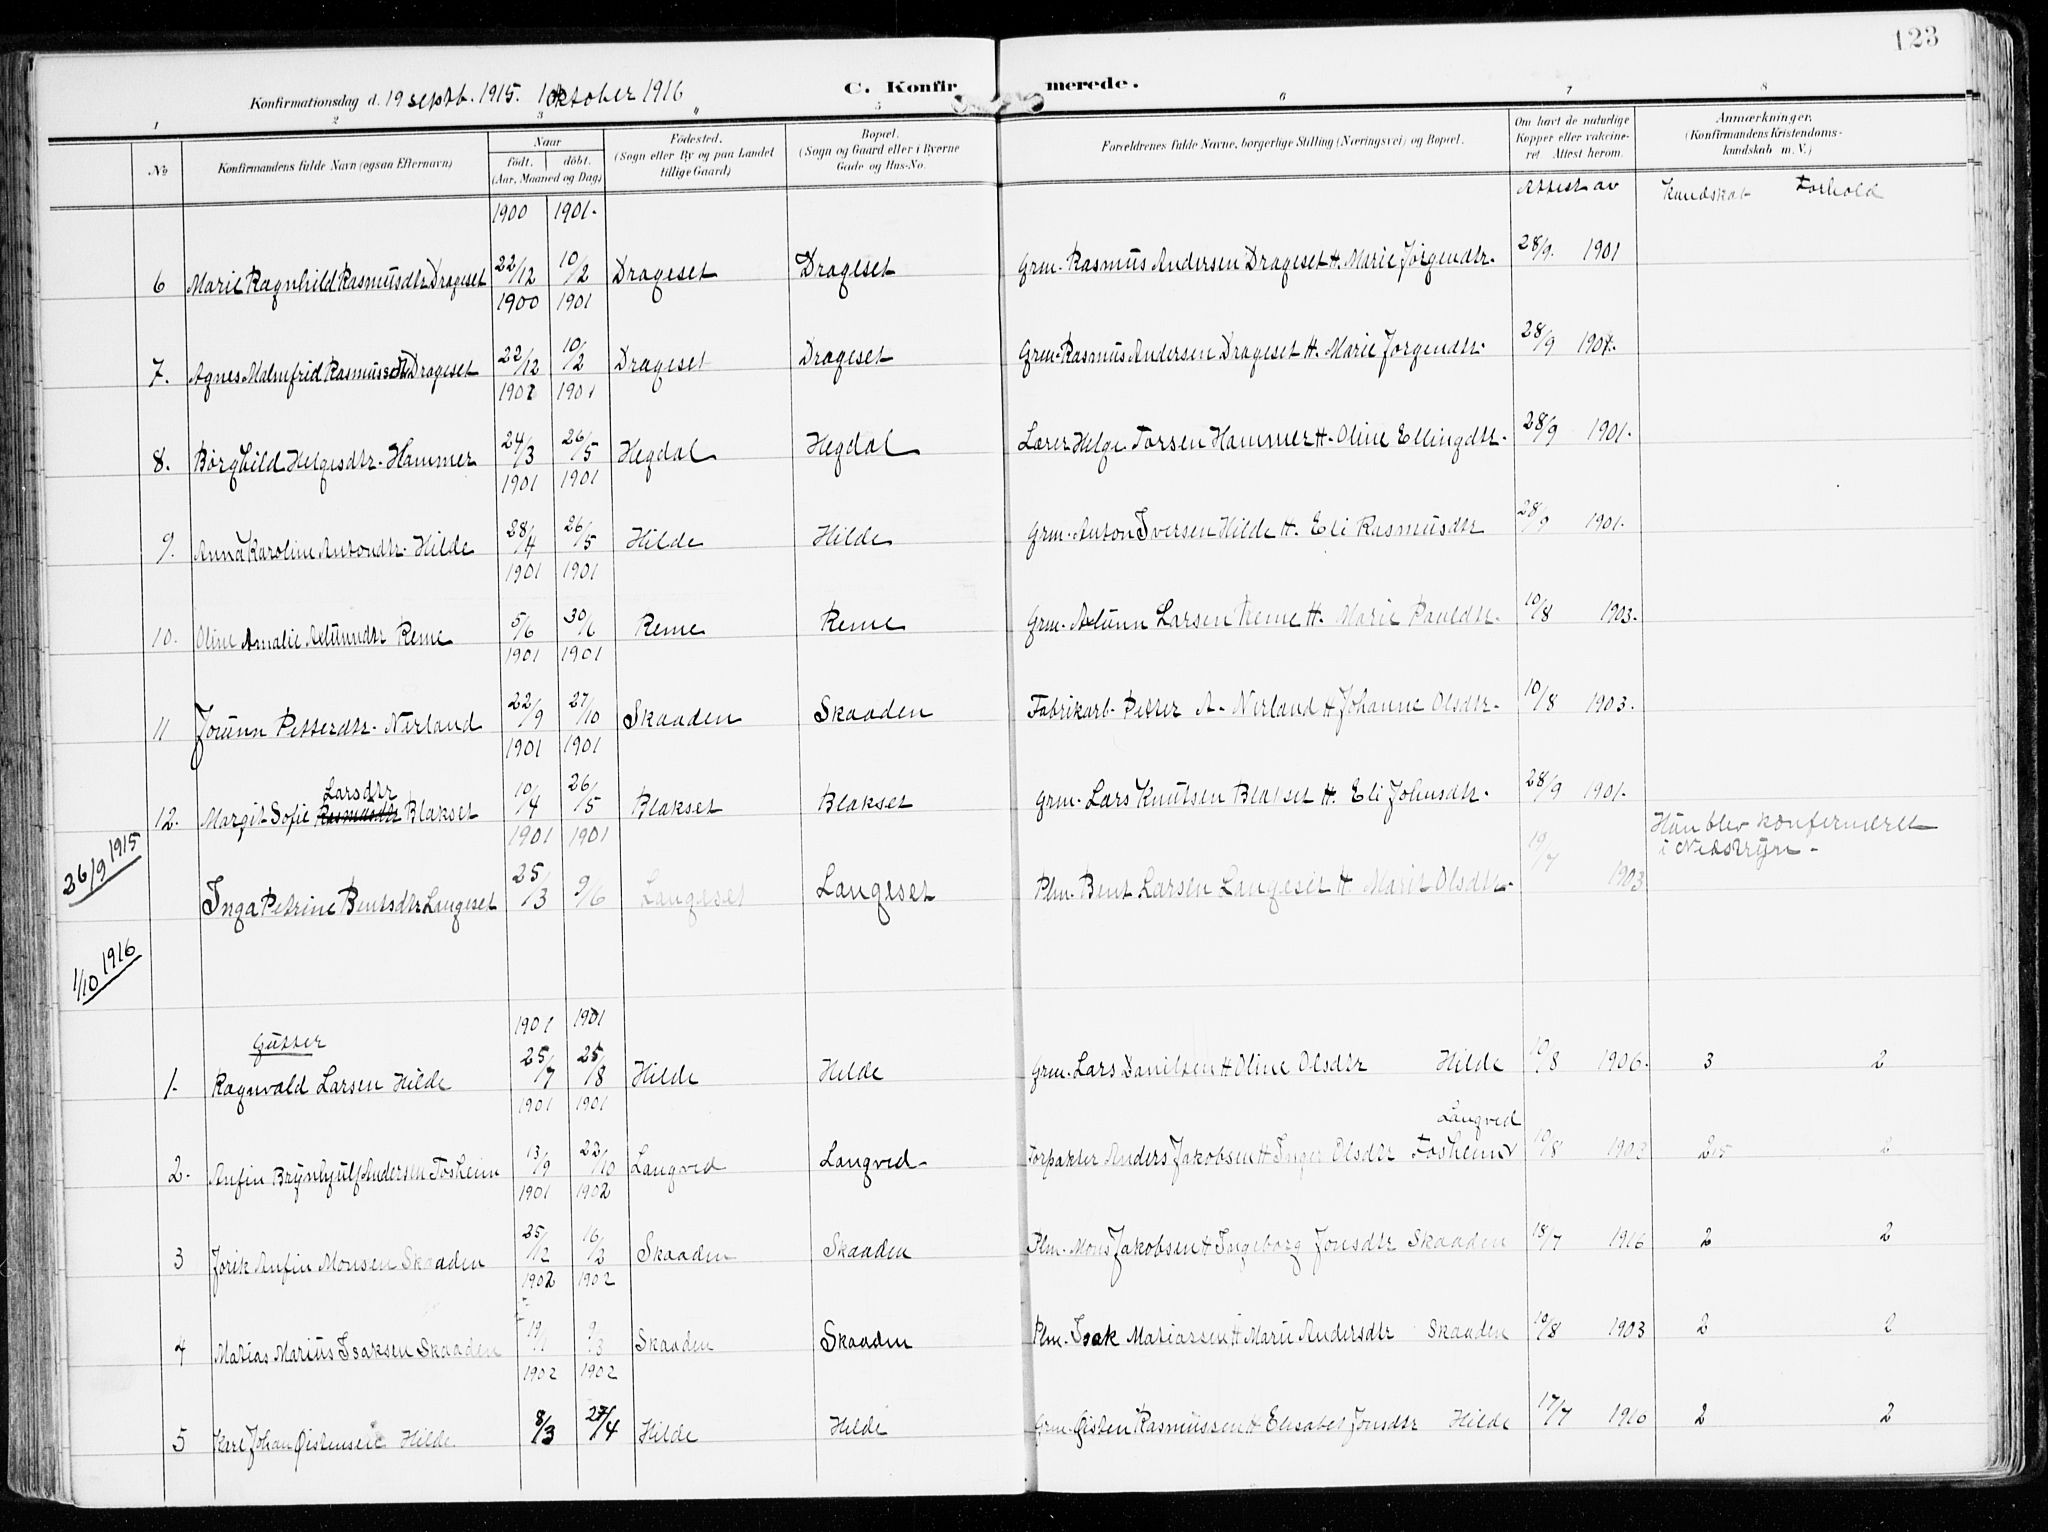 123
Konfirmationsdag d. 19 septb. 1915. 1 oktober 1916
C. Konfirmerede.
1 2 3 4 5 6 7 8
№
Konfirmandens fulde Navn (ogsaa Efternavn)
Naar
født. døbt.
(Aar, Maaned og Dag)
Fødested.
(Sogn eller By og paa Landet
tillige Gaard)
Bopæl.
(Sogn og Gaard eller i Byerne
Gade og Hus-No.
Forældrenes fulde Navne, borgerlige Stilling (Næringsvei) og Bopæl.
Om havt de naturlige
Kopper eller vakcine-
ret Attest herom.
Anmærkninger.
(Konfirmandens Kristendoms-
kundskab m. V.)
Attest av Kundskab Forhold
1900 1901.
6 Marie Ragnhild Rasmusdtr Drageset 22/12 10/2 Drageset Drageset Grm. Rasmus Andersen Drageset H. Marie Jørgendtr. 28/9. 1901
1900 1901
7. Agnes Malmfrid Rasmusdtr Drageset 22/12 10/2 Drageset Drageset Grm. Rasmus Andersen Drageset H. Marie Jørgendtr. 28/9 1901.
1901
8. Borghild Helgesdtr. Hammer 24/3 26/5 Hegdal Hegdal Lærer Helge Torsen Hammer H. Oline Ellingdtr. 28/9 1901.
1901 1901
9. Anna Karoline Antondtr. Hilde 28/4 26/5 Hilde Hilde Grm. Anton Iversen Hilde H. Eli Rasmusdtr 28/9 1901.
1901 1901
10. Oline Amalie Adtunndtr Reme 5/6 30/6 Reme Reme Grm. Larsen Reme H. Marie Pauldtr. 10/8 1903.
1901 1901
11 Jorunn Petterdtr. Nerland 22/9 27/10 Skaaden Skaaden Fabrikarb. Petter A. Nerland H Johanne Olsdtr. 10/8 1903.
1901 1901
Larsdtr
12. Margit Sofie Rasmusdtr Blakset 10/4 26/5 Blakset Blakset Grm. Lars Knutsen Blakset H. Eli Johnsdtr. 28/9 1901.
1901 1901
Hun blev konfirmeret
i Nedstryn.
26/9 1915
Inga Petrine Bentsdtr Langeset 25/3 9/6 Langeset Langeset Plm. Bent Larsen Langeset H Marit Olsdtr. 19/7 1903
1/10 1916
1901 1901
Gutter
1. Ragnvald Larsen Hilde 25/7 25/8 Hilde Hilde Grm. Lars Danilsen H Oline Olsdtr Hilde 10/8 1906. 3 2
1901 1901
Langved
2. Anfin Brynhjulf Andersen Fosheim 13/9 22/10 Langved Langved. Forpakter Anders Jakobsen H Inger Olsdtr Fosheim 10/8 1903 2,5 2
1901 1902
3 Jørik Anfin Monsen Skaaden 25/12 16/2 Skaaden Skaaden Plm. Mons Jakobsen H Ingeborg Jonsdtr Skaaden 18/7 1916 2 2
1902 1902
4 Matias Marius Isaksen Skaaden 19/1 9/3 Skaaden Skaaden Plm. Isak Matiassen H Marie Andersdtr Skaaden 10/8 1903 2 2
1902 1902
5 Karl Johan Øistensen Hilde 8/3 27/4 Hilde Hilde Grm. Øisten Rasmussen H Elisabet Jonsdtr Hilde 17/7 1916 2 2